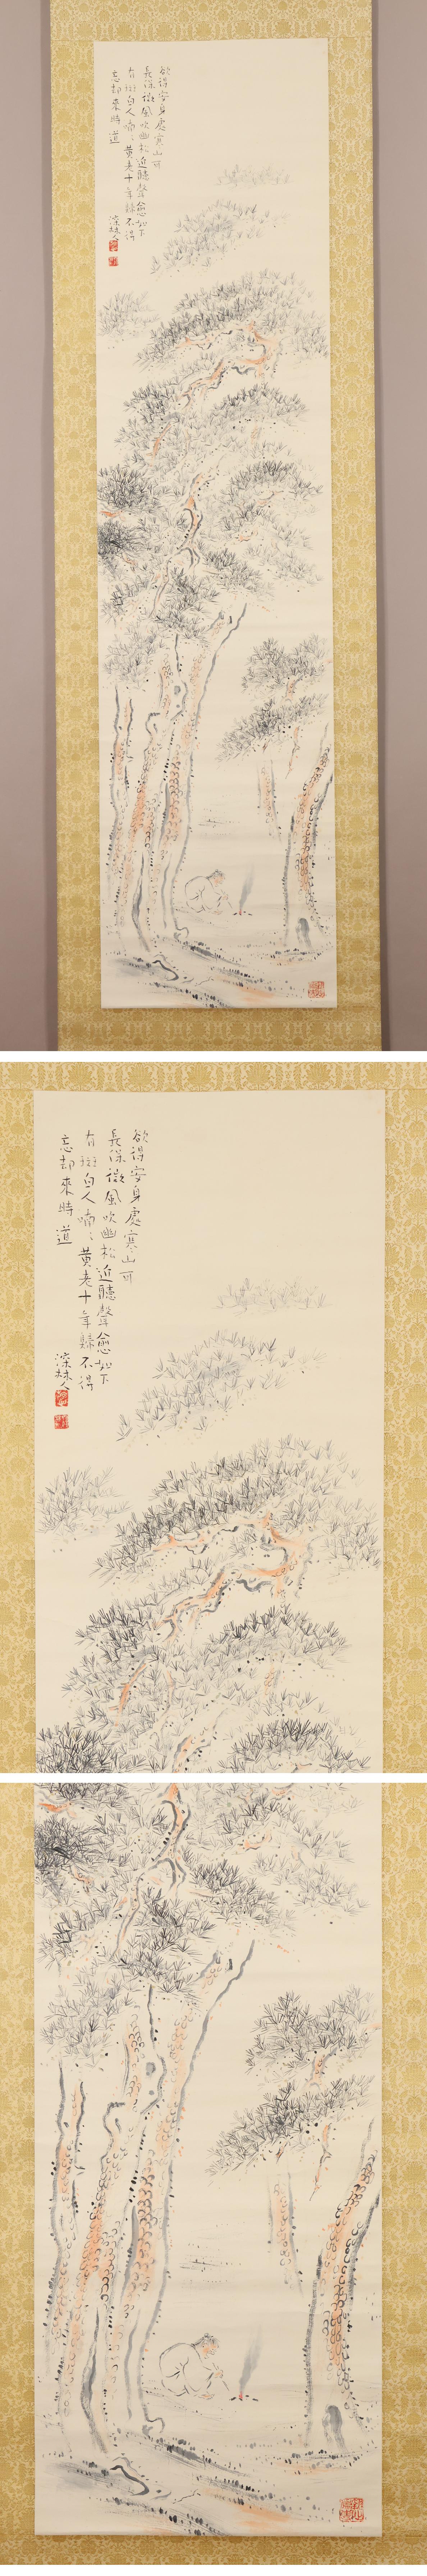 欲得安身處寒山可
長保微風吹幽松近聽聲愈好下
有斑白人喃々黄老十年歸不得
忘却來時道
深林人
欲得安身處寒山可
長保微風吹幽松近聽聲愈好下
有斑白人喃々黄老十年歸不得
忘却來時道
深林人